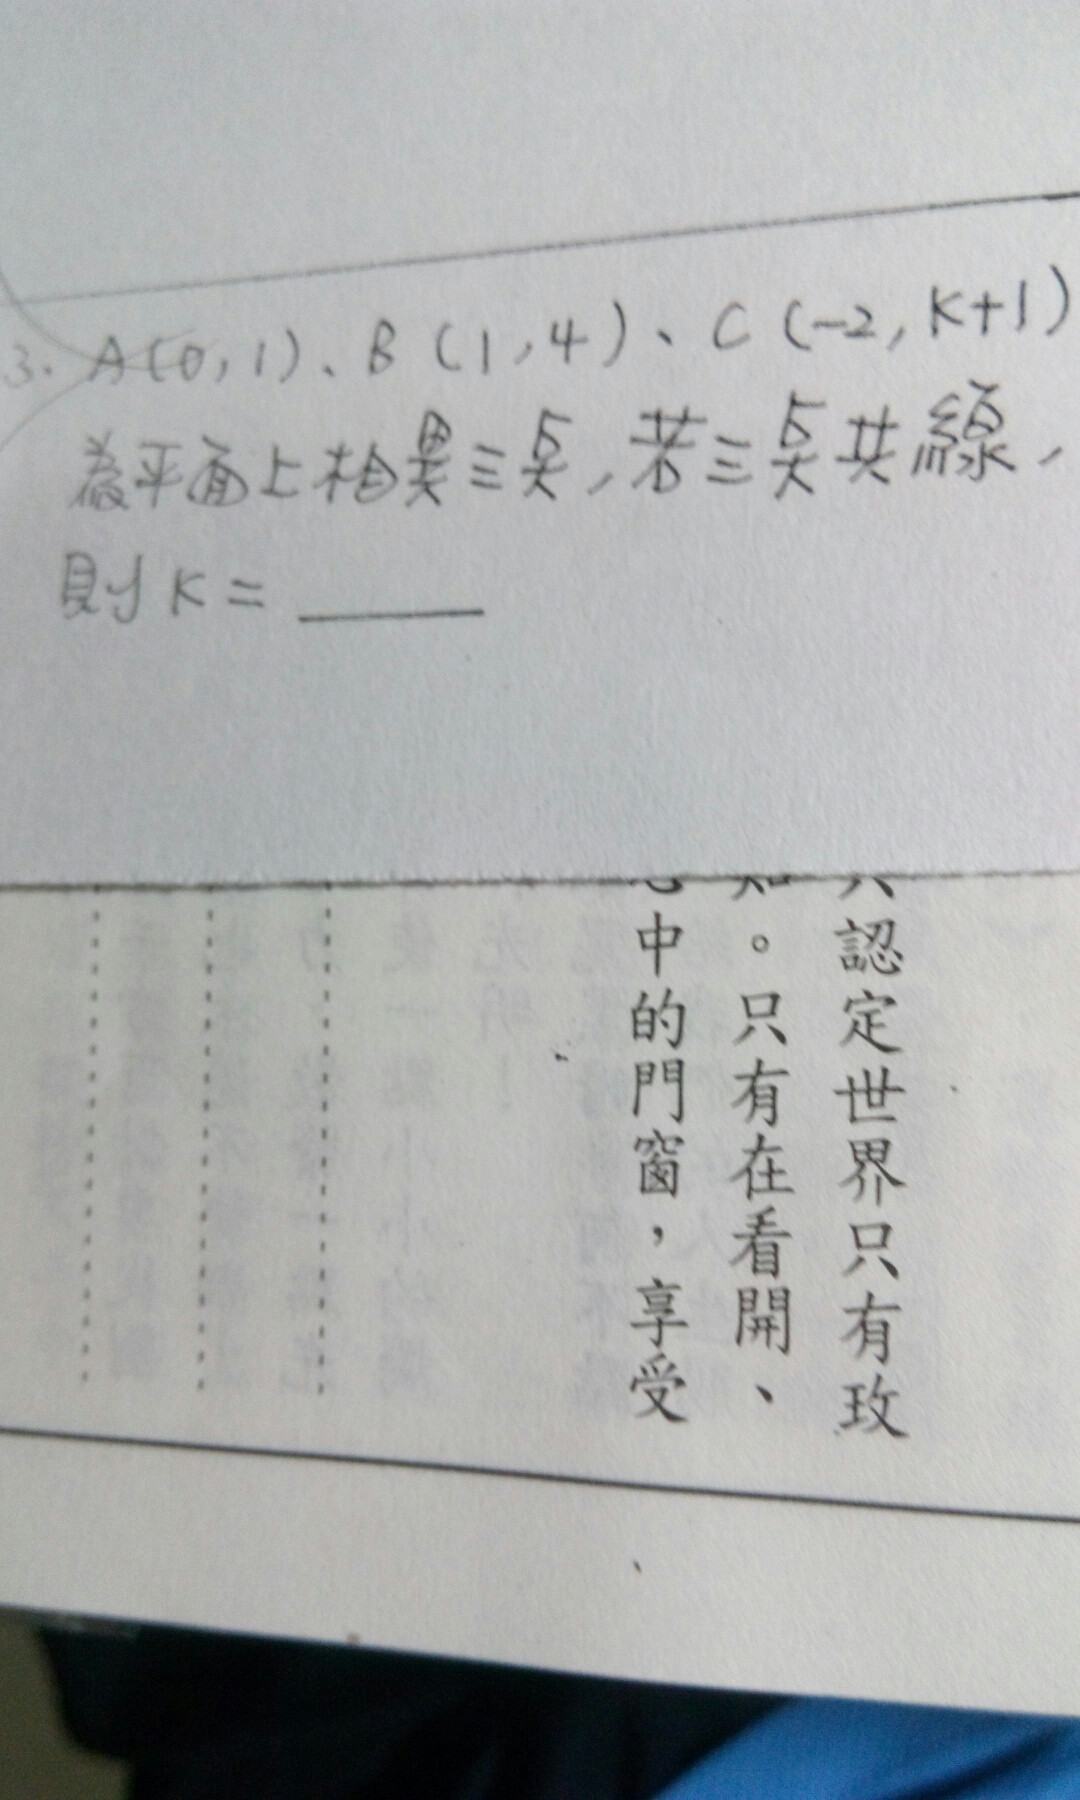 3. A(0,1)、B(1,4)、C(-2,k+1)
為平面上相異三点,若三点共線,
則k=
認定世界只有玫
。只有在看開、
中的門窗,享受